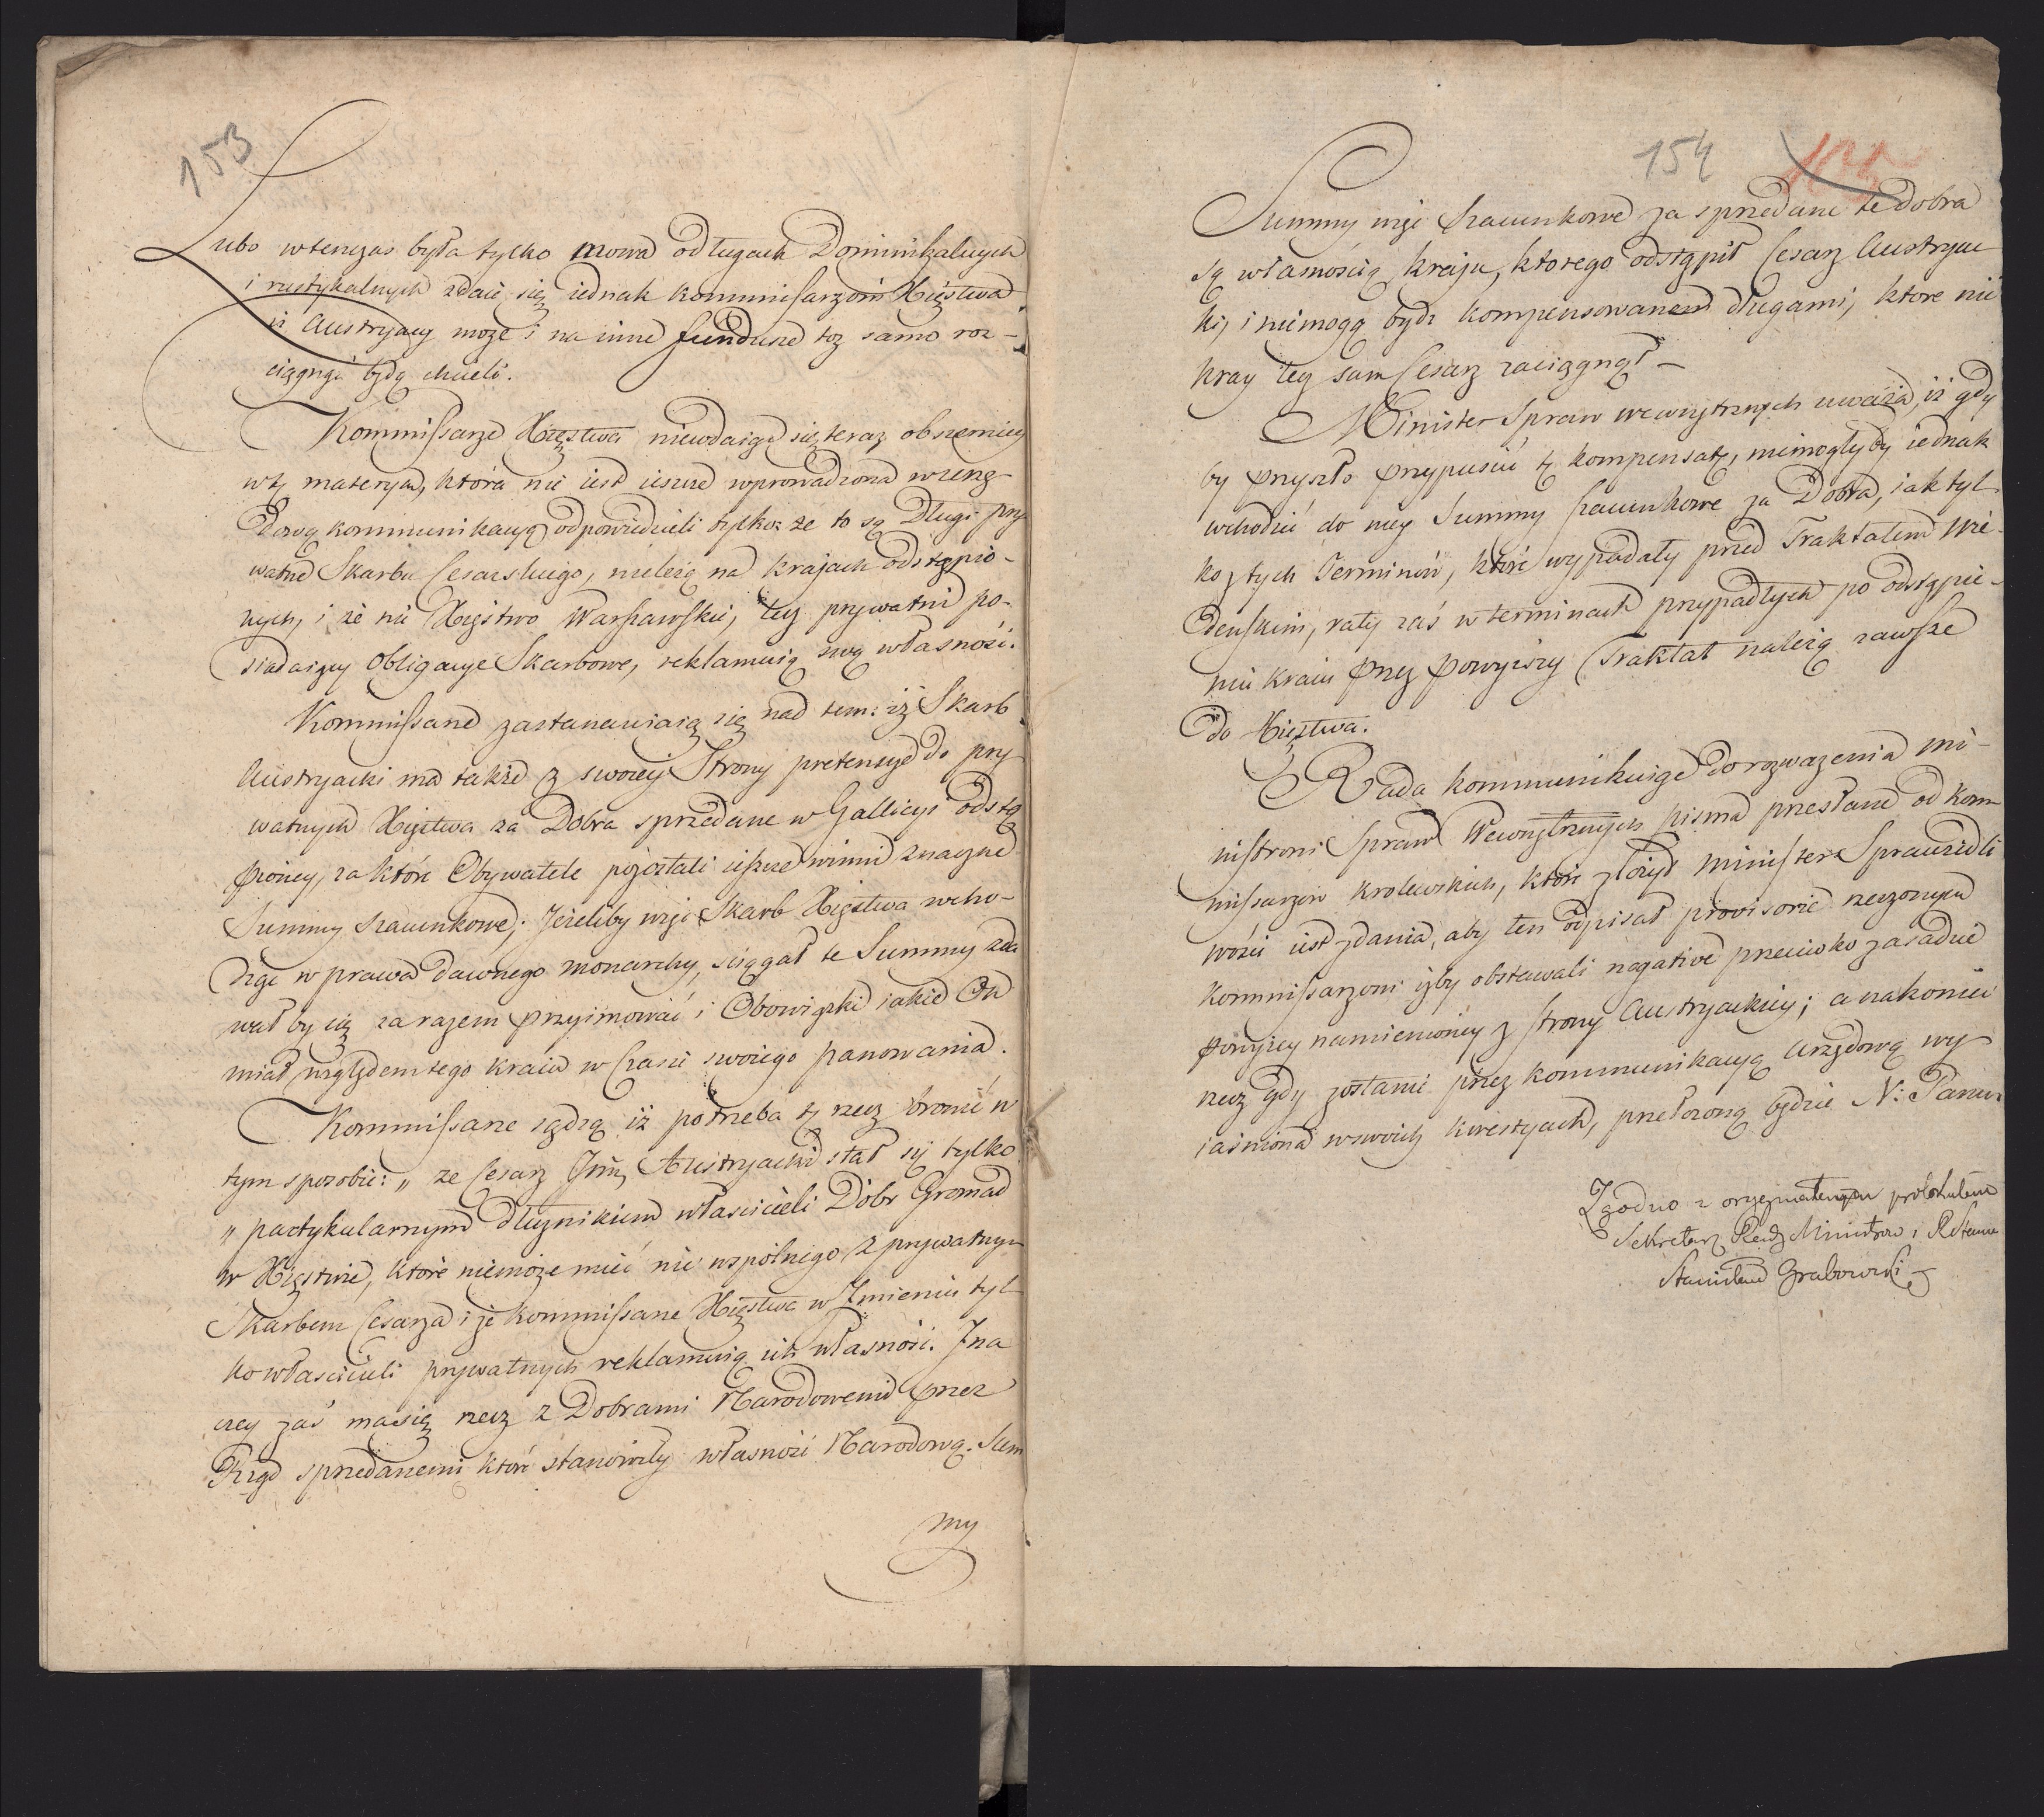 153
Lubo wtenczas była tylko mowa o długach Dominikalnych
i rustykalnych zdaie się iednak kommissarzom Xięstwa
iż Austryacy może i na inne fundusze toż samo roz-
ciągnąć będą chcieli.
Kommissarze Xięstwa niewdaiąc się teraz obszerniey
w tę materyą, która nie iest ieszcze wprowadzona wurzę-
dową kommunikacyą odpowiedzieli tylko: że to są Długi pry
watne Skarbu Cesarskiego, nieleżą na krajach odstąpio-
nych, i że nie Xięstwo Warszawskie, lecz prywatni po-
siadaiący Obligacye Skarbowe, reklamuią swą własność.
Kommissarze zastanawiaią się nad tem: iż Skarb
Austryacki ma także z swoiey Strony pretensye do pry
watnych Xięstwa za Dobra sprzedane w Gallicyi odstą
pioney, za które Obywatele pozostali ieszcze winni znaczne
Summy Szacunkowe; Jeżeliby więc Skarb Xięstwa wcho-
dząc w prawa dawnego monarchy, sciągał te Summy zda
wał by się zarazem przyimować i Obowiązki iakie On
miał względem tego kraiu w Czasie swoiego panowania.
Kommissarze sądzą iż potrzeba tę rzecz bronić w
tym sposobie: „ że Cesarz Jmć Austryacki stał się tylko
„ partykularnym dłużnikiem właścicieli Dóbr Gromad
w Xięstwie, które niemoże mieć nic wspólnego z prywatnym
Skarbem Cesarza i że kommissarze Xięstwa w Imieniu tyl
ko właścicieli prywatnych reklamuią ich własność. Ina
czey zaś ma się rzecz z Dobrami Narodowemi przez
Rząd sprzedanemi które stanowiły własność Narodową. Sum
my
154
Summy więc Szacunkowe za sprzedane te dobra
są własnością kraju, ktorego odstąpił Cesarz Austryac
ki, i niemogą bydz kompensowane długami, ktore nie
kray lecz sam Cesarz zaciągnął –
Minister Spraw wewnętrznych uważa, iż gdy
by przyszło przypuścić tę kompensatę, niemogłyby iednak
wchodzić do niey Summy Szacunkowe za Dobra, iak tyl
ko z tych Terminów, które wypadały przed Traktatem Wie-
deńskim, raty zaś w terminach przypadłych po odstąpie-
niu kraiu przez powyższy Traktat należą zawsze
do Xięstwa.
Rada kommunikuiąc do rozważenia mi-
nistrowi Spraw Wewnętrznych pisma przesłane od kom-
missarzow krolewskich, które złożył minister Sprawiedli
wości iest zdania, aby ten odpisał provisorie rzeczonym
kommissarzom iżby obstawali negative przeciwko zasadzie
powyżey namienioney z strony Austryackiey; a nakoniec
rzecz gdy zostanie przez kommunikacyą urzędową wy
iaśniona wswoich kwestyach, przełożoną będzie N: Panu.
Zgodno z oryginalnym protokułem
Sekretarz Rady Ministrow i R Stanu
Stanisław Grabowski